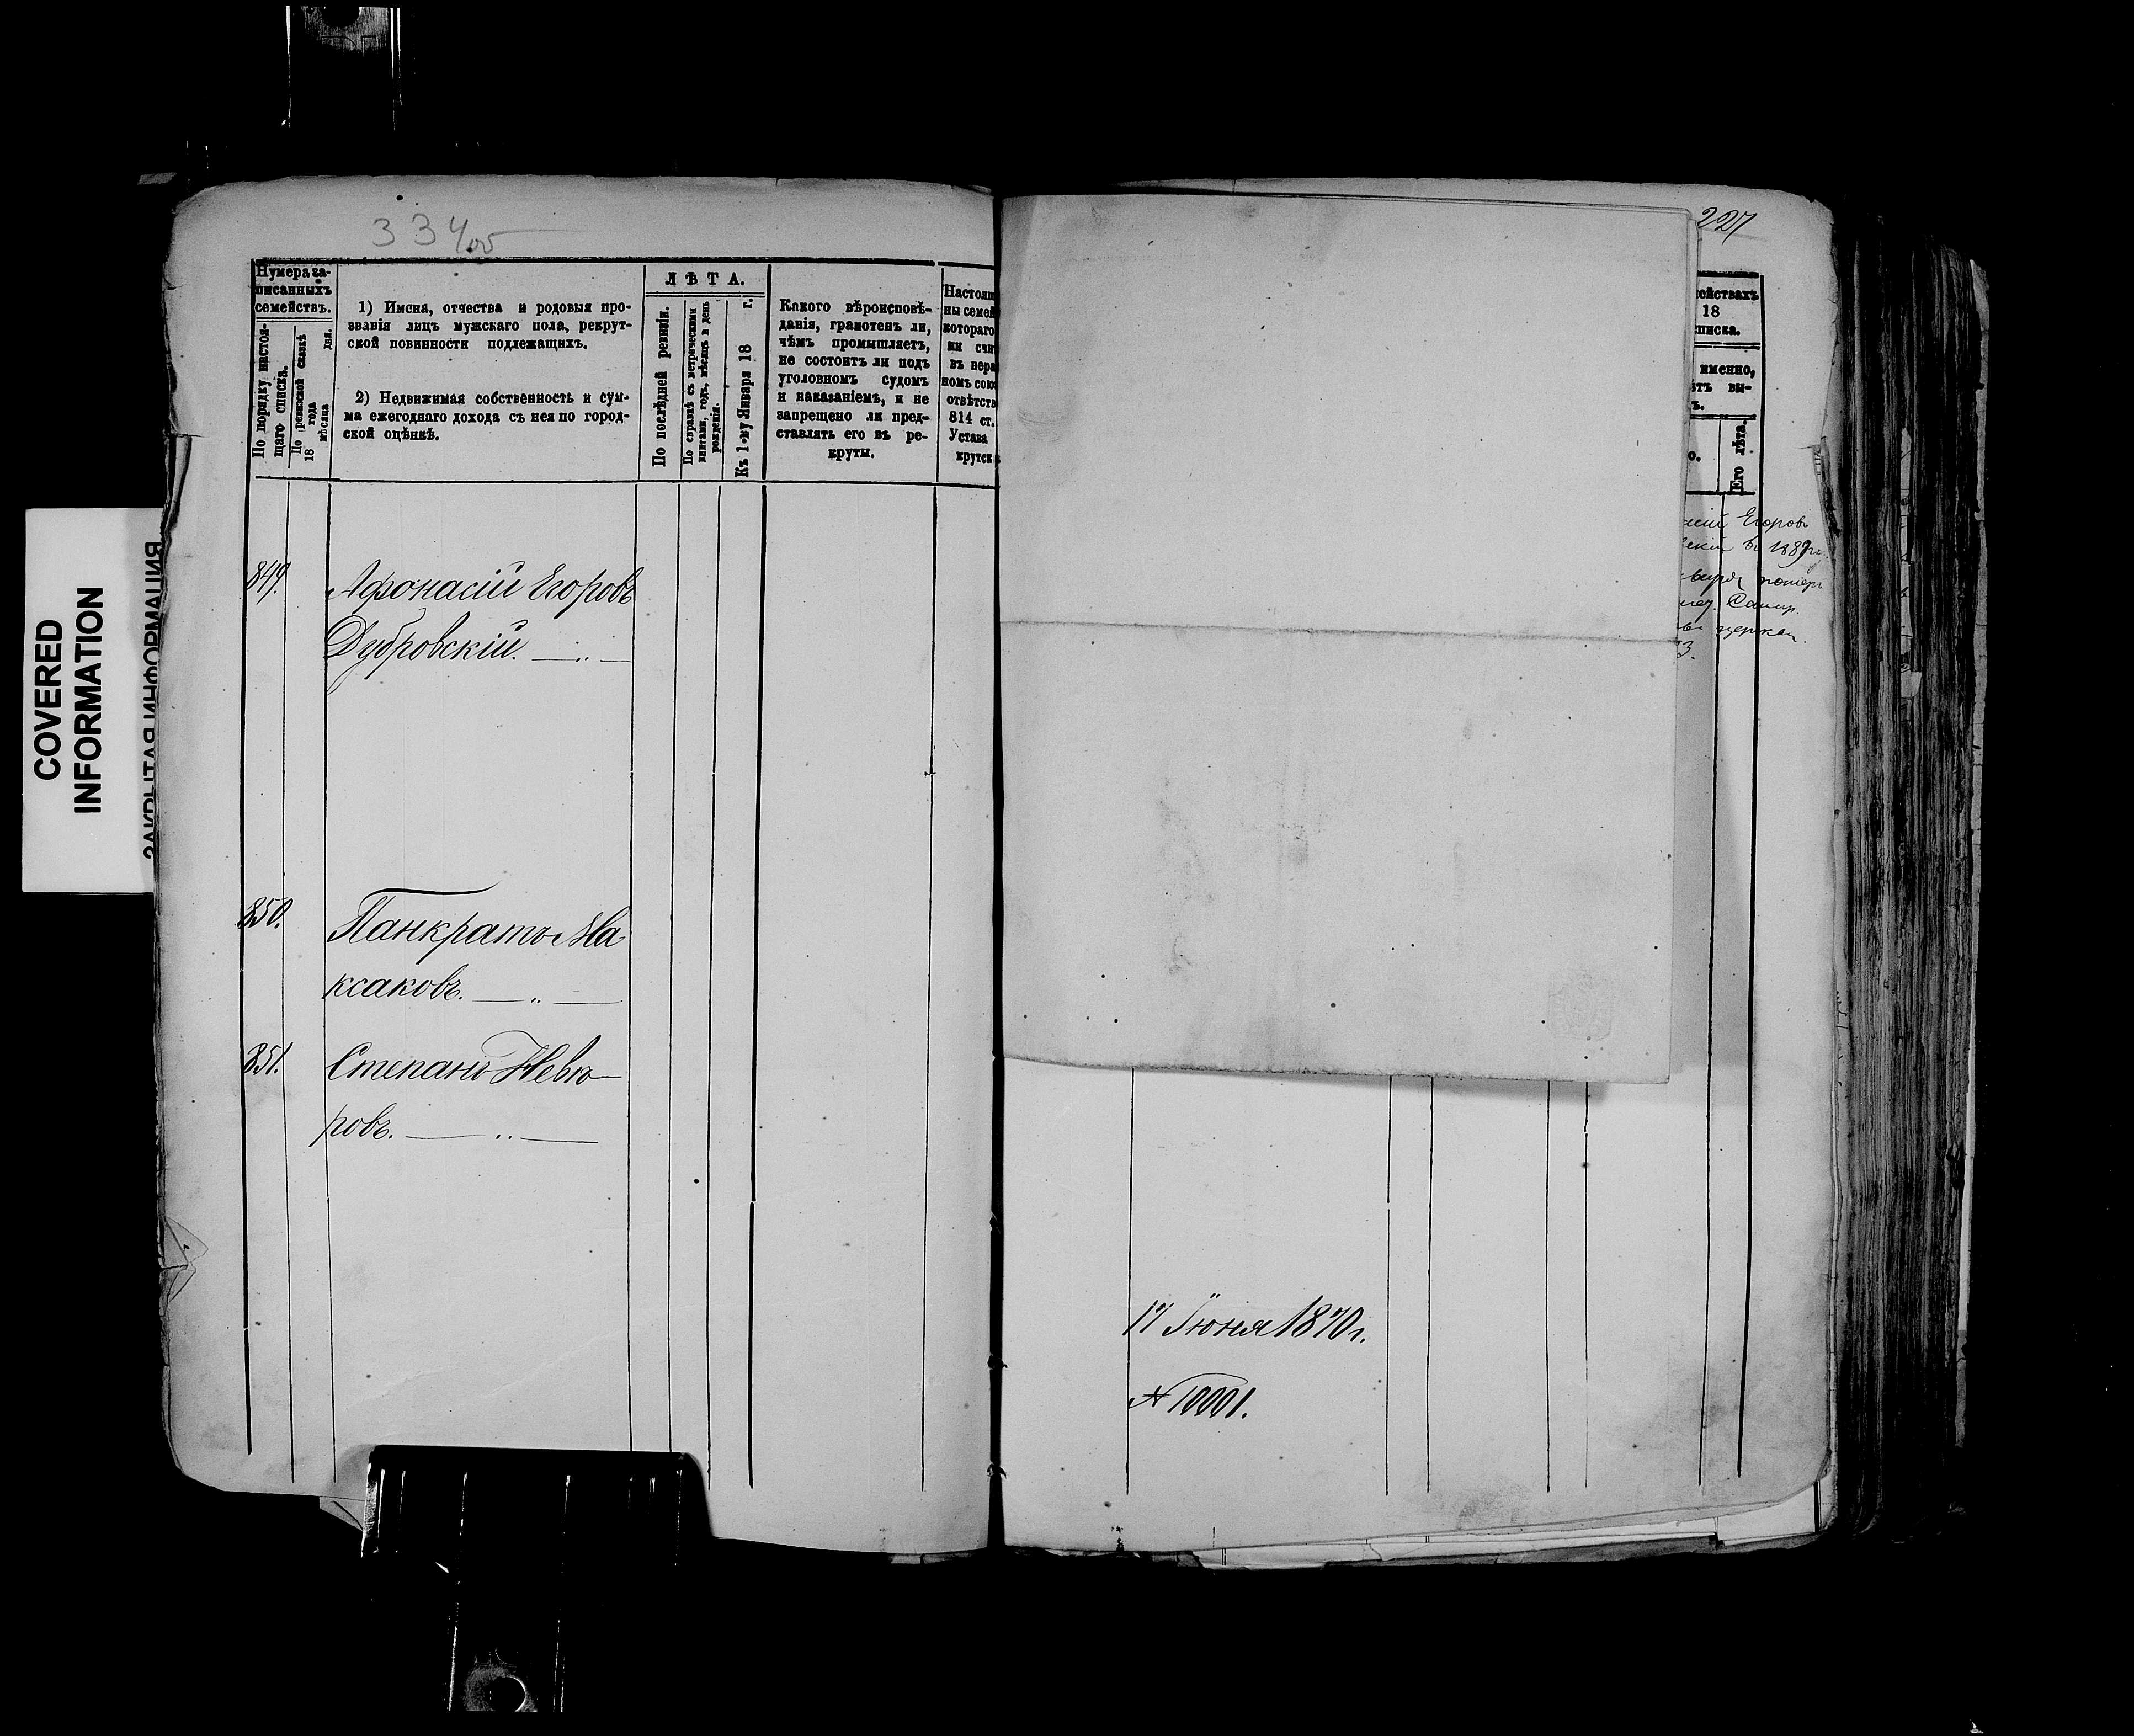 334об
Нумера за-
писанныхъ
семействъ.
По порядку настоя-
щаго списка.
По ревизской сказкѣ
18 года
мѣсяца дня.
1) Имена, отчества и родовыя про-
званія лицъ мужскаго пола, рекрут-
ской повинности подлежащихъ.
2) Недвижимая собственность и сум-
ма ежегоднаго дохода съ нея по город-
ской оцѣнкѣ.
ЛѢТА.
По послѣдней ревизіи.
По справкѣ съ метрическими
книгами, годъ, мѣсяцъ и день
рожденія.
Къ 1-му Января 18 г.
Какого вѣроисповѣ-
данія, грамотенъ ли,
чѣмъ промышляетъ,
не состоитъ ли подъ
уголовномъ судомъ
и наказаніемъ, и не
запрещено ли пред-
ставлять его въ ре-
круты.
Настоящ
ны семей
котораго
ми счи
въ нера
номъ сою
отвѣтств
814 ст.
Устава
крутск
849.
Афонасій Егоровъ
Дубровскій.
850.
Панкратъ Ма
ксаковъ.
851.
Степанъ Невю
ровъ.
COVERED
INFORMATION
ЗАКРЫТАЯ ИНФОРМАЦИЯ
227
ействахъ
18
списка.
именно,
ѣтъ вы-
ъ.
о.
Его лѣта.
Егоровъ
въ 1889
церкви
3.
17 Іюня 1870 г.
№ 10001.